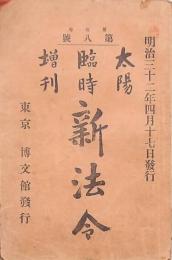 明治三十二年四月十七日發行
第八號
太陽
臨時
增刊
新法令
東京 博文館發行